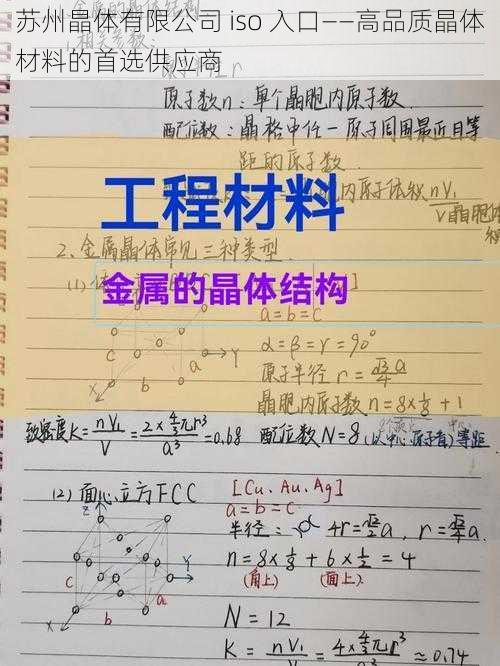 苏州晶体有限公司 iso 入口——高品质晶体
材料的首选供应商
原子数n：单个晶胞内原子数
配位数：晶格中任一原子周围最近且等
距的原子数
内原子体积 nV₁
V晶胞体
工程材料
2、金属晶体常见三种类型
金属的晶体结构
(1)
a=b=c
α=β=γ=90°
原子半径 r=√3/4 a
晶胞内原子数 n=8×1/8+1
致密度K=nV₁/V=2×4/3πr³/a³=0.68 配位数N=8
等距
(2) 面心立方FCC [Cu、Au、Ag]
a=b=c
半径： 4r=√2a，r=√2/4 a
n=8×1/8+6×1/2=4
(角上) (面上)
N=12
K=nV₁/V=4×4/3πr³/a³≈0.74
c
b
a
X
Y
Z